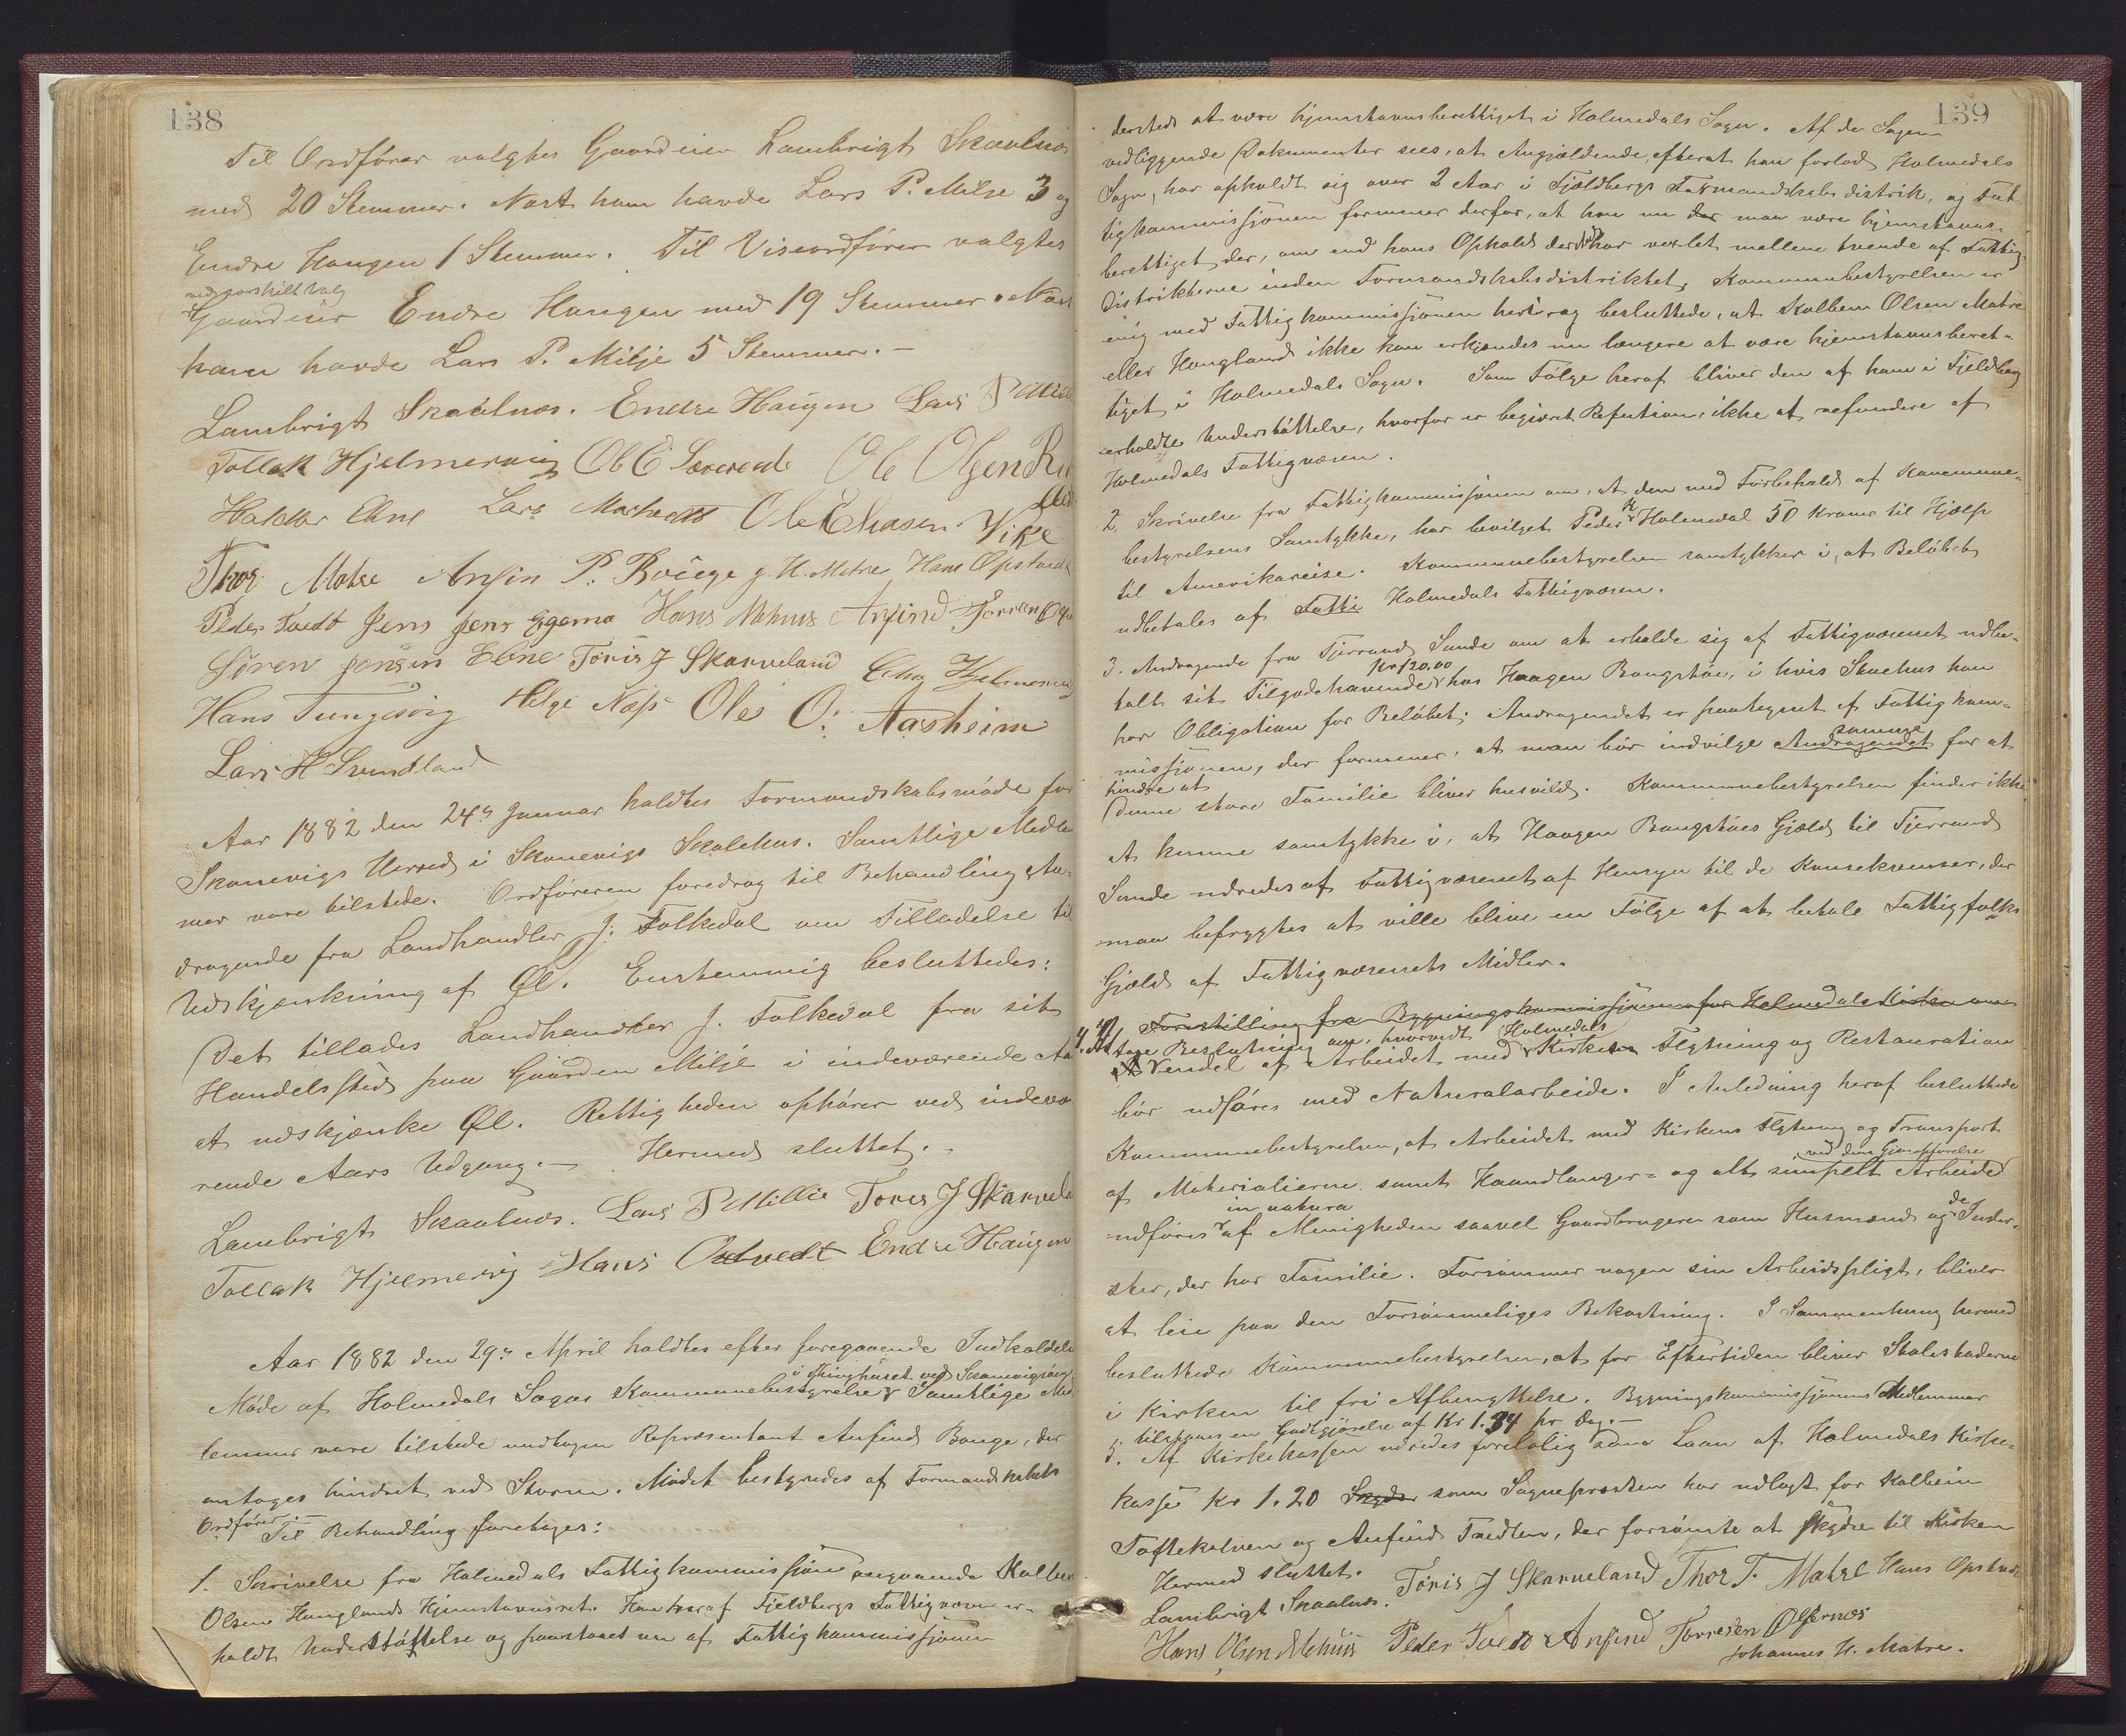 138
Til Ordfører valgtes Gaardeier Lambrigt Skaalnæs
med 20 Stemmer. Næst ham havde Lars P. Milje 3 og
Endre Haugen 1 Stemmer. Til Viseordfører valgtes
ved særskilt Valg
Gaardeier Endre Haugen med 19 Stemmer. Næst
ham havde Lars P. Milje 5 Stemmer. –
Lambrigt Skaalnæs. Endre Haugen Lars P Milje
Tollak Hjelmervig Ole Ole Olsen
Haldor Ebne Lars Ole Eliasen Vike
Thor Matre Anfin P. Bouge J. H. Matre Hans Opstvedt
Peder Tvedt Jens Jens Hans Mehuus Anfind Torresen
Søren Jensen Ebne Tøris J Skarveland
Hans Tungesvig Helge Næss Ole O. Aarsheim
Lars H Svendland
Aar 1882 den 24de Januar holdtes Formandskabsmøde for
Skonevigs Herred i Skonevigs Skolehus. Samtlige Medlem-
mer vare tilstede. Ordføreren foredrog til Behandling An-
dragende fra Landhandler J. Folkedal om Tilladelse til
Udskjænkning af Øl. Enstemmig besluttedes:
Det tillades Landhandler J. Folkedal fra sit
Handelssted paa Gaarden Milje i indeværende Aar
at udskjænke Øl. Rettigheden ophører ved indevæ-
rende Aars Udgang. – Hermed sluttet. –
Lambrigt Skaalnæs. Lars P Millie Tøris J Skarveland
Tollak Hjelmervig Hans Opstvedt Endre Haugen
Aar 1882 den 29de April holdtes efter foregaaende Indkaldelse
i Thinghuset ved Skonevigsøren
Møde af Holmedals Sogns Kommunebestyrelse. Samtlige Med-
lemmer vare tilstede undtagen Repræsentant Anfind Bouge, der
antages hindret ved Storm. Mødet bestyredes af Formandskabets
Ordfører. –
Til Behandling foretoges:
1. Skrivelse fra Holmedals Fattigkommissjon angaaende Kolben
Olsen Hauglands Hjemstavnsret. Han har af Fjeldbergs Fattigvæsen er-
holdt Understøttelse og paastaaet nu af Fattigkommissjonen
139
dersteds at være hjemstavnsberettiget i Holmedals Sogn. Af de Sagen
vedliggende Dokumenter sees, at Angjældende, efterat han forlod Holmedals
Sogn, har opholdt sig over 2 Aar i Fjeldbergs Formandskabsdistrik, og Fat-
tigkommissjonen formener derfor, at han nu der maa være hjemstavns-
berettiget der, om end hans Ophold dersteds har vexlet mellem tvende af Fattig-
Distrikterne inden Formandskabsdistriktet. Kommunebestyrelsen er
enig med Fattigkommissjonen heri og besluttede, at Kolben Olsen Matre
eller Haugland ikke kan erkjendes nu længere at være hjemstavnsberet-
tiget i Holmedals Sogn. Som Følge heraf bliver den af ham i Fjeldberg
erholdte Understøttelse, hvorfor er begjæret Refution, ikke at refundere af
Holmedals Fattigvæsen.
2. Skrivelse fra Fattigkommissjonen om, at den med Forbehold af Kommune-
bestyrelsens Samtykke, har bevilget Peder Holmedal 50 Kroner til Hjælp
til Amerikareise. Kommunebestyrelsen samtykker i, at Beløbet
udbetales af Fatti Holmedals Fattigvæsen.
3. Andragende fra Tjerrand Sunde om at erholde sig af Fattigvæsenet udbe-
Kr. 120.00
talt sit Tilgodehavende hos Haagen Bangstøe, i hvis Stuehus han
har Obligation for Beløbet. Andragendet er paategnet af Fattigkom-
samme
missjonen, der formener, at man bør indvilge Andragendet for at
hindre at
denne store Familie bliver husvild. Kommunebestyrelsen finder ikke
at kunne samtykke i, at Haagen Bangstøes Gjæld til Tjerrand
Sunde udredes af Fattigvæsenet af Hensyn til de Konsekvenser, der
maa befrygtes at ville blive en Følge af at betale Fattigfolks
Gjæld af Fattigvæsenets Midler.
Forestilling fra Bygningskommissjonen for Holmedals Kirke om
4. At tage Beslutning om, hvorvidt Holmedals
endel af Arbeidet med Kirkens Flytning og Restauration
bør udføres med Naturalarbeide. I Anledning heraf besluttede
Kommunebestyrelsen, at Arbeidet med Kirkens Flytning og Transport
ved dens Gjenopførelse
af Materialierne samt Haandlanger- og alt simpelt Arbeide
in natura
udføres af Menigheden saavel Gaardbrugere som Husmænd og de Inder-
ster, der har Familie. Forsømmer nogen sin Arbeidspligt, bliver
at leie paa den Forsømmeliges Bekostning. I Sammenhæng hermed
besluttede Kommunebestyrelsen, at for Eftertiden bliver Stolestaderne
i Kirken til fri Afbenyttelse. Bygningskommissjonens Medlemmer
tilstaaes en Godtgjørelse af Kr 1.34 pr Dag. –
5. Af Kirkekassen udredes foreløbig som Laan af Holmedals Kirke-
kasse Kr 1.20 Skyds som Sognepræsten har udlagt for Kolbein
Toftekalven og Anfind Tvedten, der forsømte at skydse til Kirken
Hermed sluttet.
Lambrigt Skaalnæs. Tøris J Skarveland Thor T. Matre Hans Opstvedt
Hans Olsen Mehuus Peder Tvedt Anfind Torresen Ølfernæs
Johannes H. Matre.